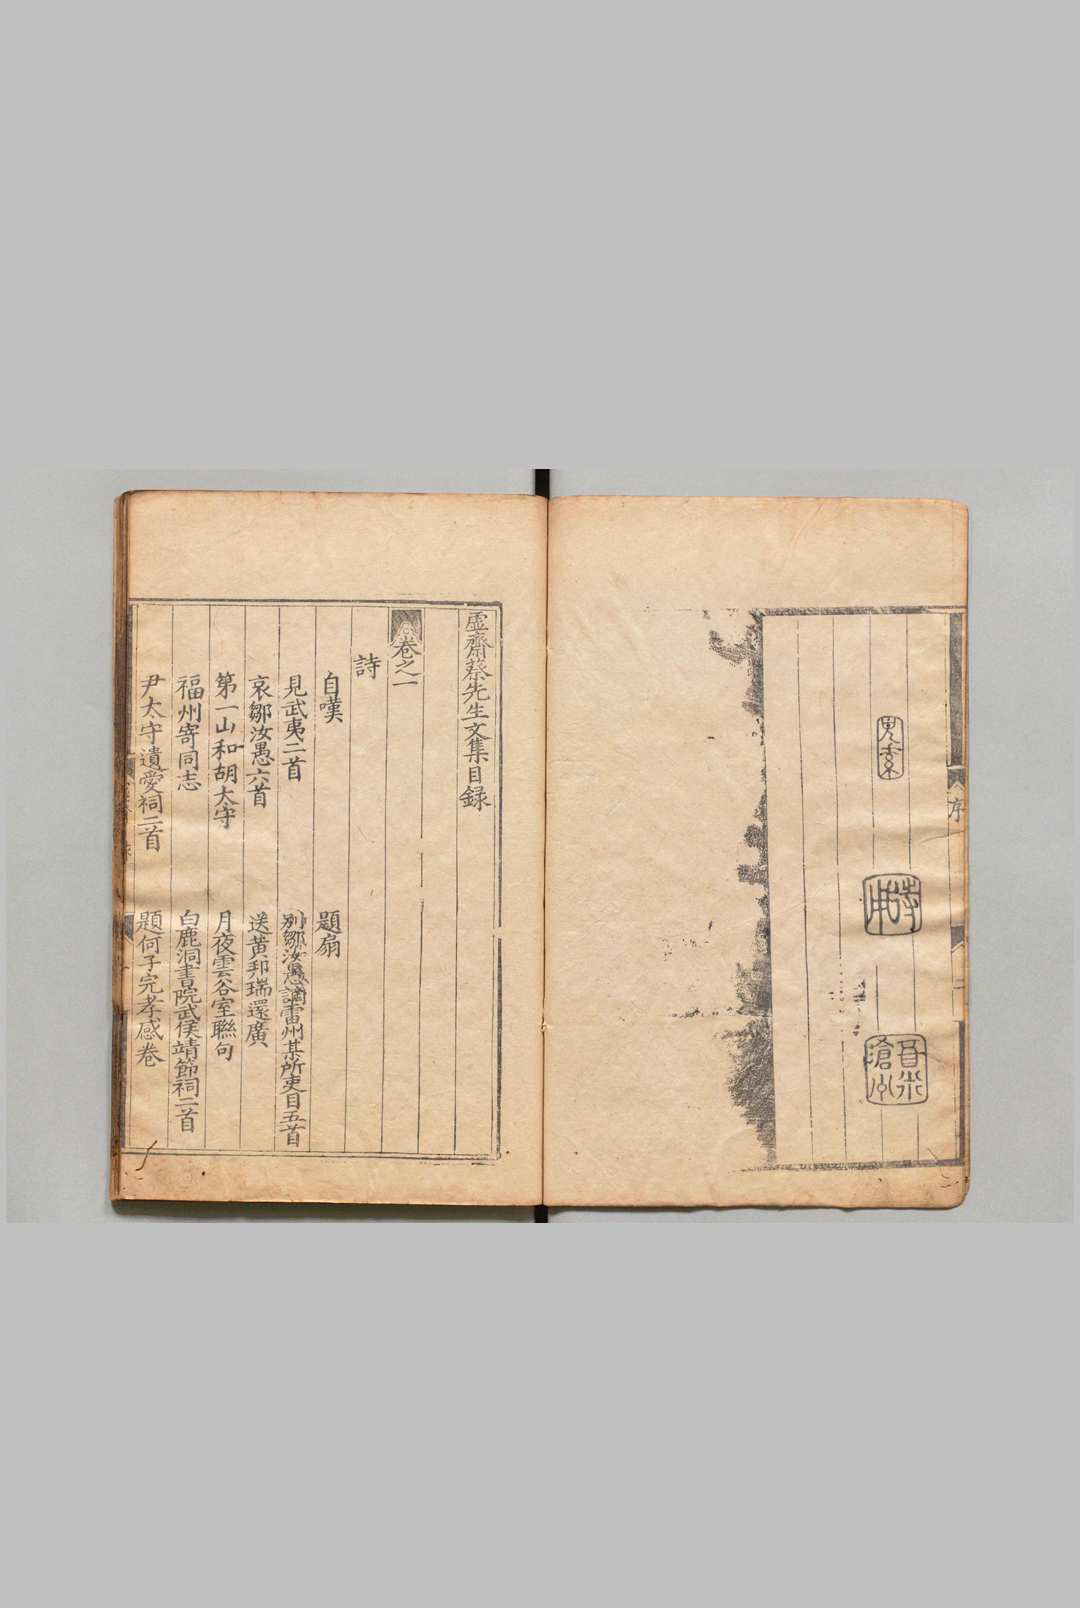 序
二
虛齋蔡先生文集目録
卷之一
詩
自嘆
題扇
見武夷二首
別鄒汝愚謫雷州某所吏目五首
哀鄒汝愚六首
送黃邦瑞還廣
第一山和胡太守
月夜雲谷室聯句
福州寄同志
白鹿洞書院武侯靖節祠二首
尹太守遺愛祠二首
題何子完孝感卷